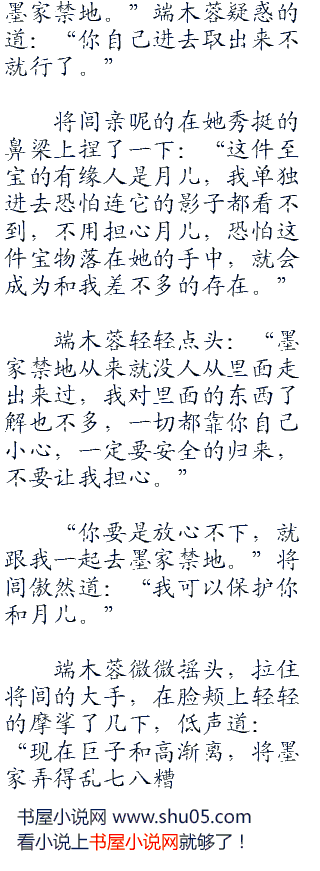 墨家禁地。”端木蓉疑惑的
道：“你自己进去取出来不
就行了。”
将闾亲昵的在她秀挺的
鼻梁上捏了一下：“这件至
宝的有缘人是月儿，我单独
进去恐怕连它的影子都看不
到，不用担心月儿，恐怕这
件宝物落在她的手中，就会
成为和我差不多的存在。”
端木蓉轻轻点头：“墨
家禁地从来就没人从里面走
出来过，我对里面的东西了
解也不多，一切都靠你自己
小心，一定要安全的归来，
不要让我担心。”
“你要是放心不下，就
跟我一起去墨家禁地。”将
闾傲然道：“我可以保护你
和月儿。”
端木蓉微微摇头，拉住
将闾的大手，在脸颊上轻轻
的摩挲了几下，低声道：
“现在巨子和高渐离，将墨
家弄得乱七八糟
书屋小说网 www.shu05.com
看小说上书屋小说网就够了！